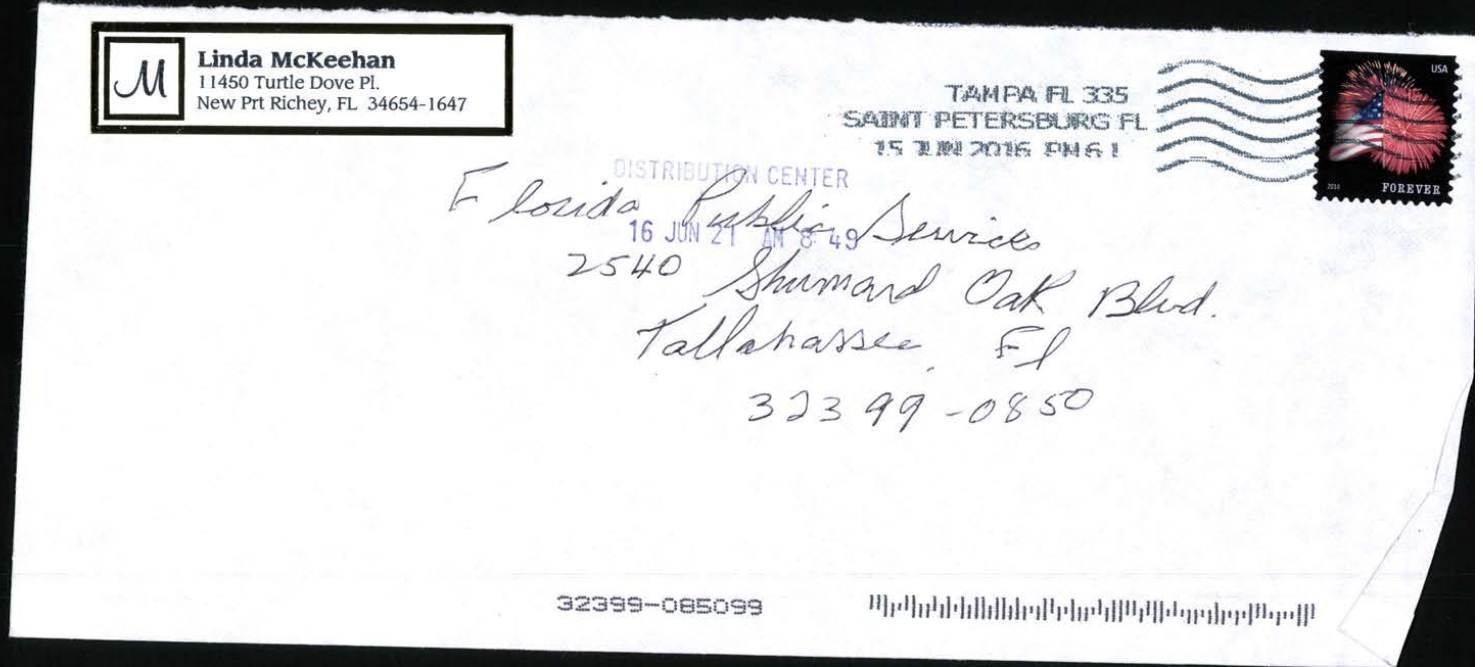 M
Linda McKeehan
11450 Turtle Dove Pl.
New Prt Richey, FL 34654-1647
TAMPA FL 335
SAINT PETERSBURG FL
15 JUN 2016 PM 6 1
USA
2014 FOREVER
DISTRIBUTION CENTER
Florida Public Services
16 JUN 21 AM 8 49
2540 Shumard Oak Blvd.
Tallahassee, Fl
32399-0850
32399-085099